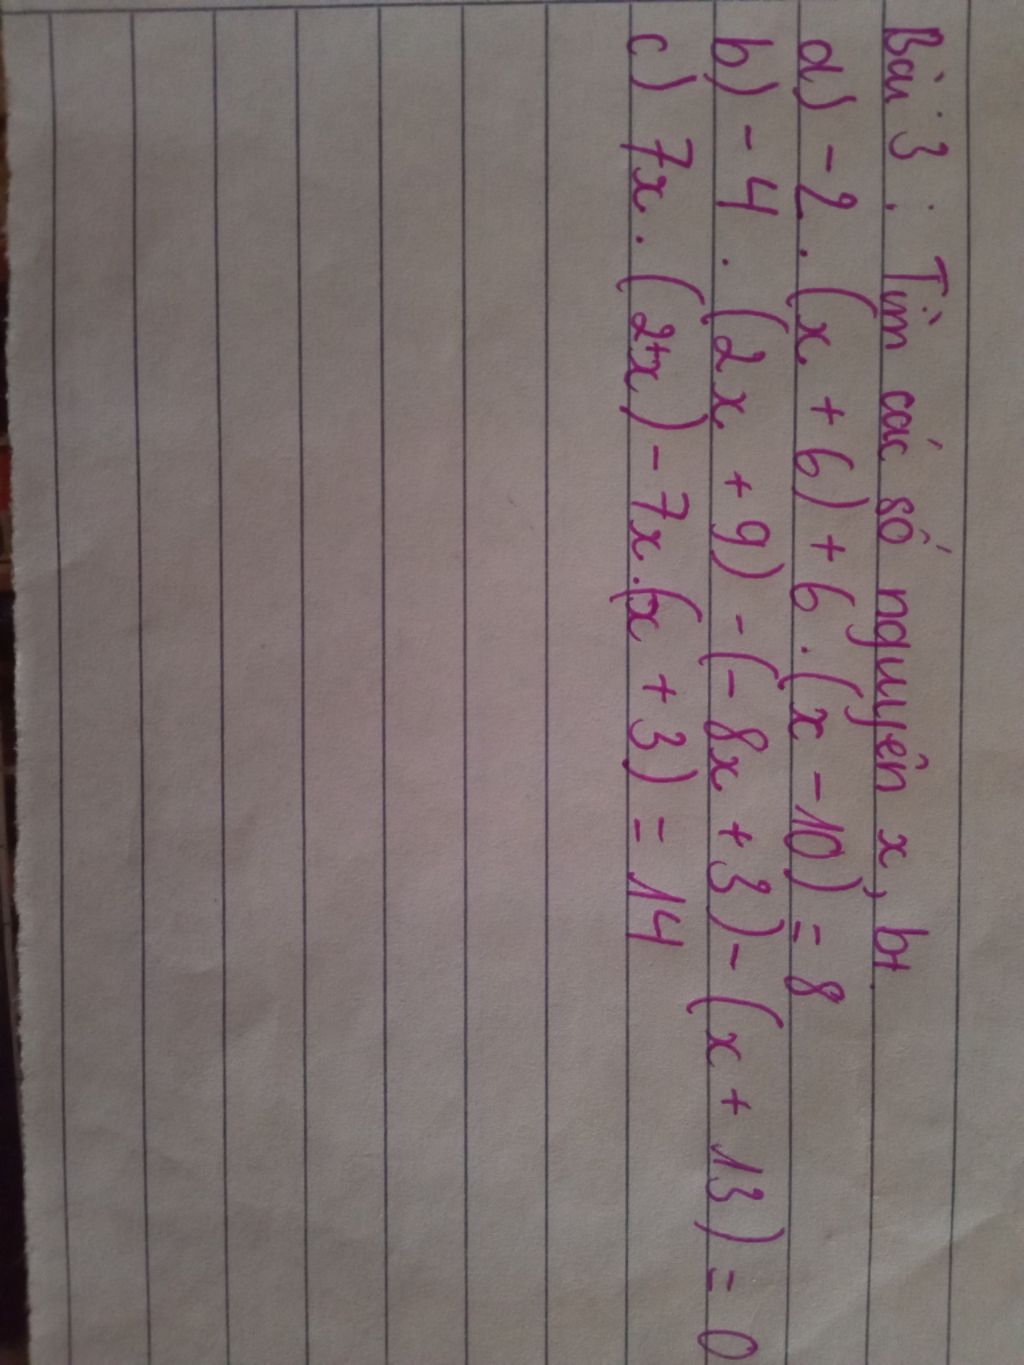 Bài 3 : Tìm các số nguyên x, bt
a) - 2 . (x + 6) + 6 . (x - 10) = 8
b) - 4 . (2x + 9) - (- 8x + 3) - (x + 13) = 0
c) 7x . (2+x) - 7x.(x + 3) = 14